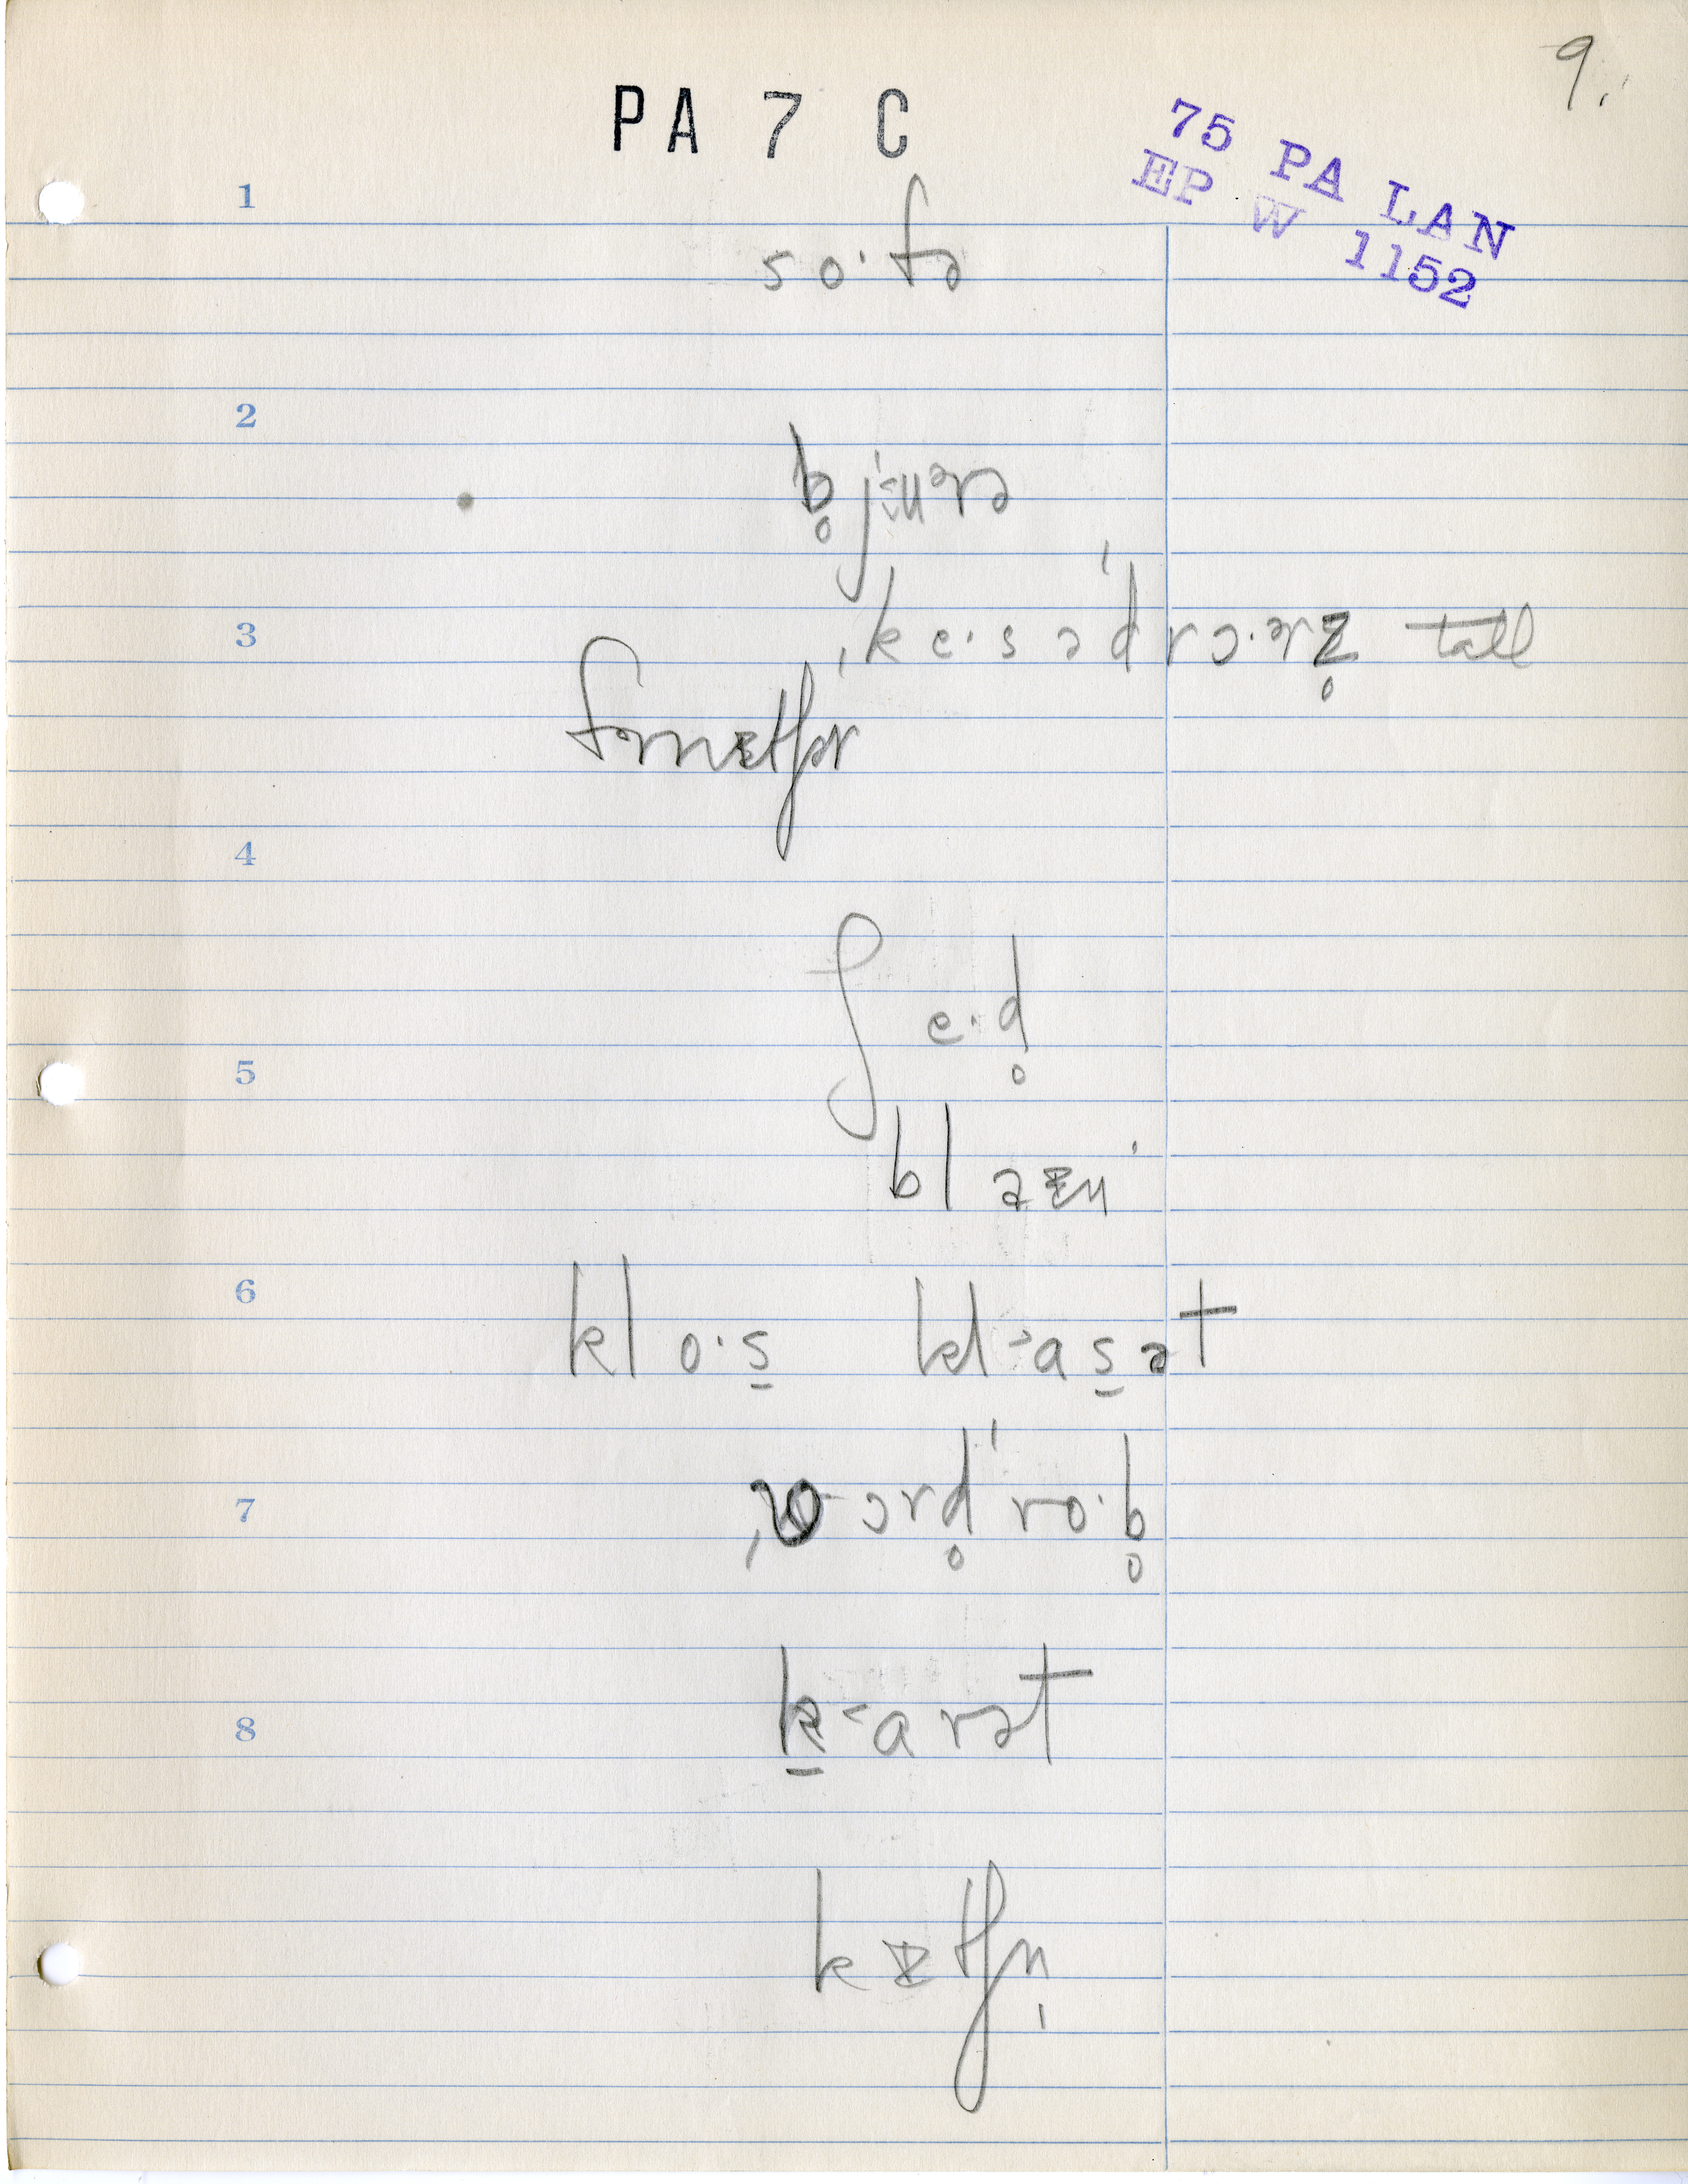 9.
PA 7 C
75 PA LAN
EP W 1152
1
so·fə
2
b̥jᵾ·ᵊrə
3
ˌke·sə'drɔ·ᵊrz̥ tall
fɚnᵻtʃɚ
4
ʃe·d̥
5
blaᵻn'
6
klo·s̠ kl˂as̠ət
7
ˌwɔrd̥'ro·b̥
8
k̠˂arət
kᵻtʃn̩